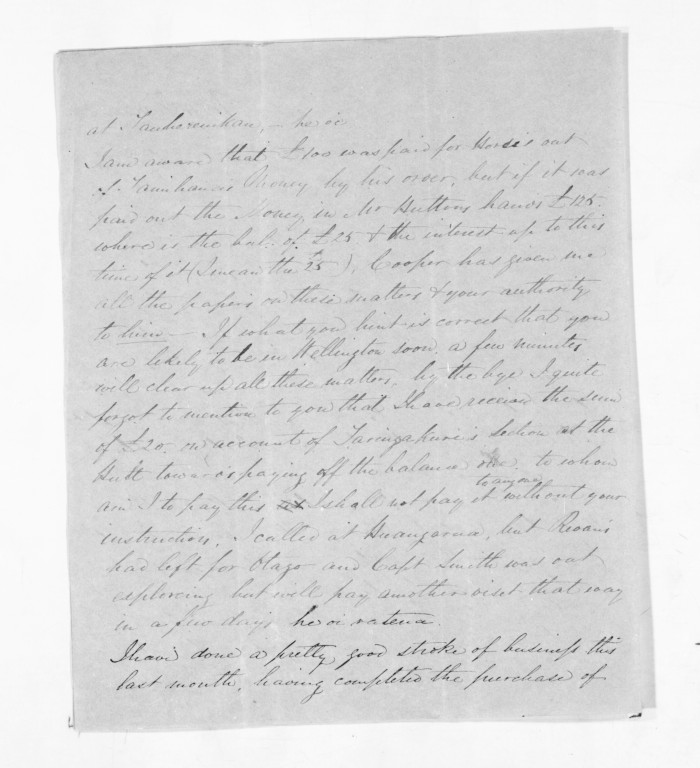 at Tauherenikau, — he oi
I am aware that £100 was paid for Horses out
of Tamihana's Money by his order, but if it was
paid out the Money in Mr Huttons hands £125.
where is the bal: of £25 & the interest up to this
time of it (I mean the £25), Cooper has given me
all the papers on these matters & your authority
to him — If what you hint is correct that you
are likely to be in Wellington soon, a few minutes
will clear up all these matters, by the bye I quite
forgot to mention to you that I have receivd the sum
of £20. on account of Taringakuri's Section at the
Hutt towards paying off the balance to whom
am I to pay this I shall not pay it to anyone without your
instruction. I called at Huangarua, but
had left for Otago and Capt Smith was out
exploring but will pay another visit that way
in a few days he oi
I have done a pretty good stroke of business this
last month, having completed the purchase of